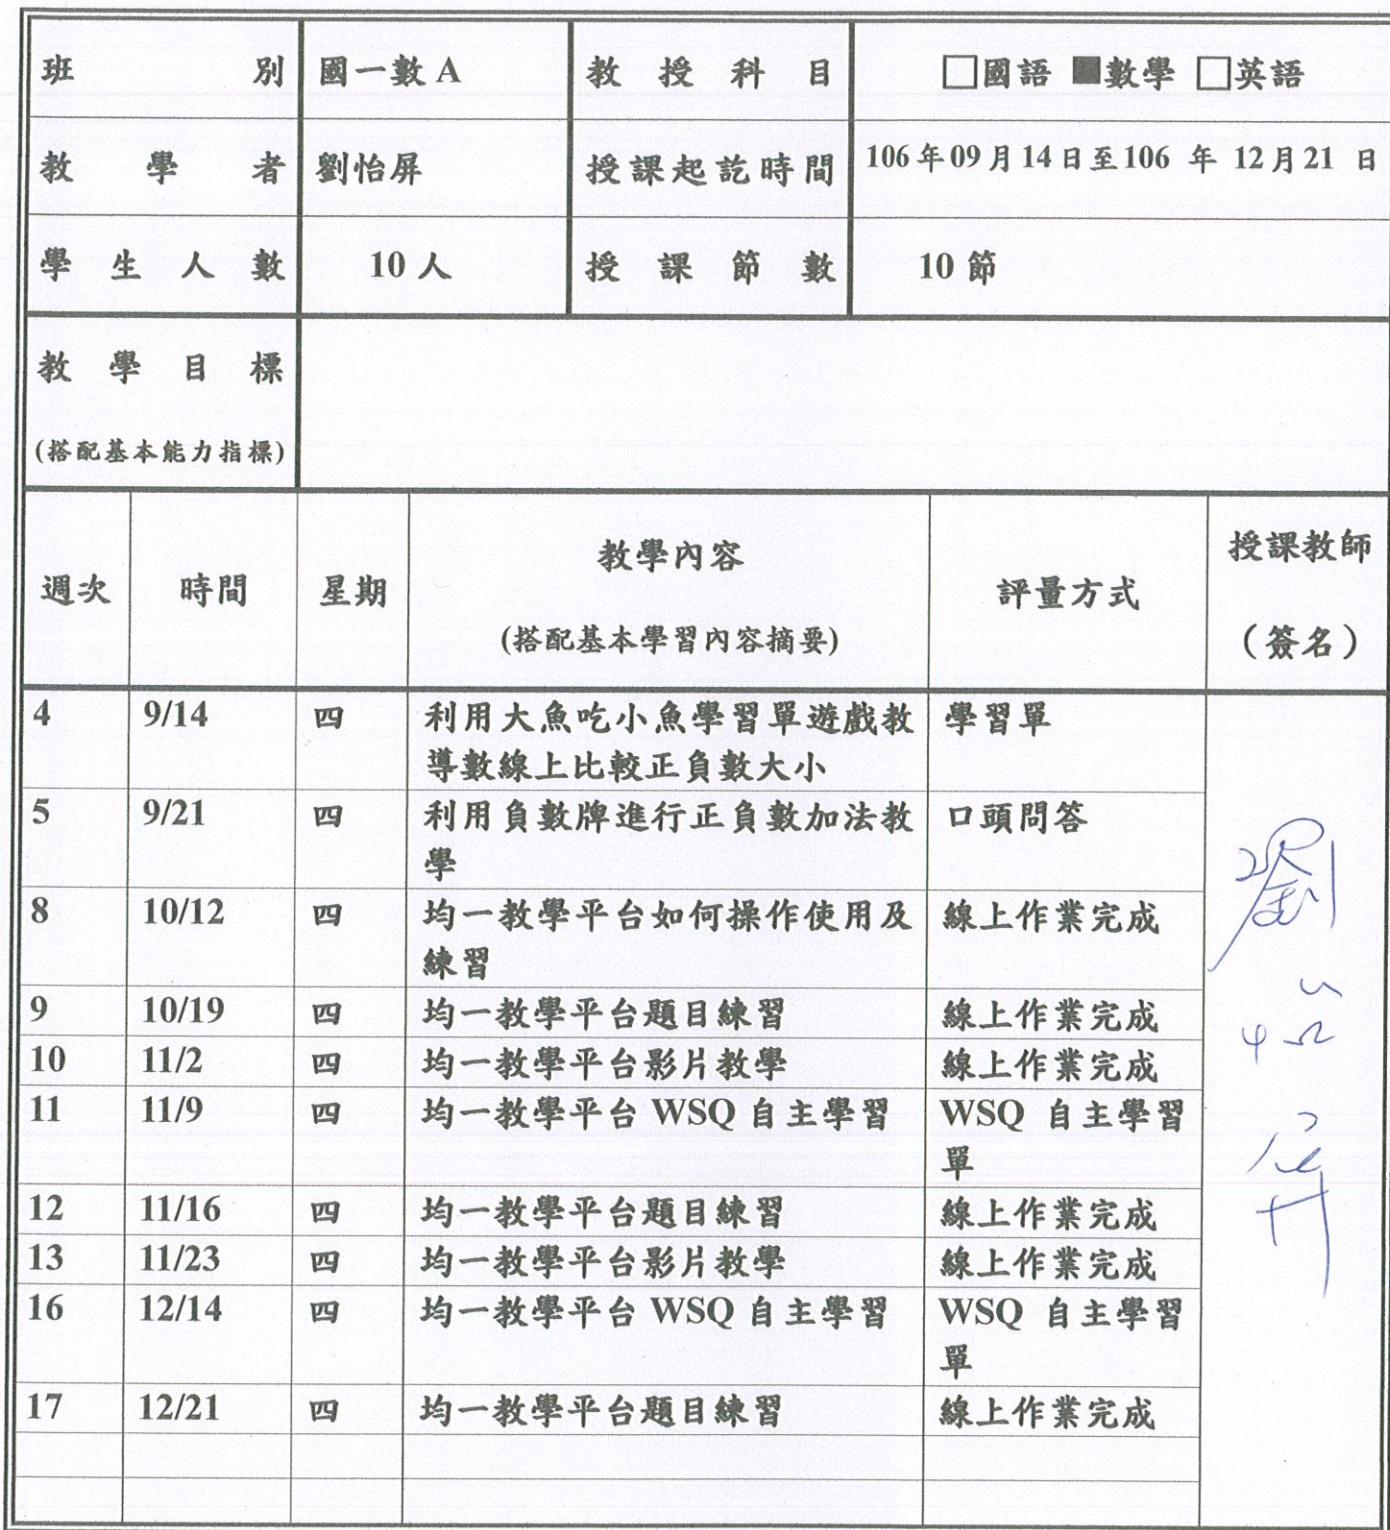 班 別 國一數A 教授科目 □國語 ■數學 □英語
教學者 劉怡屏 授課起訖時間 106年09月14日至106 年 12月21 日
學生人數 10人 授課節數 10節
教學目標
(搭配基本能力指標)
週次 時間 星期 教學內容 (搭配基本學習內容摘要) 評量方式 授課教師 (簽名)
4 9/14 四 利用大魚吃小魚學習單遊戲教 學習單
導數線上比較正負數大小
5 9/21 四 利用負數牌進行正負數加法教 口頭問答
學
8 10/12 四 均一教學平台如何操作使用及 線上作業完成
練習
9 10/19 四 均一教學平台題目練習 線上作業完成
10 11/2 四 均一教學平台影片教學 線上作業完成
11 11/9 四 均一教學平台 WSQ 自主學習 WSQ 自主學習
單
12 11/16 四 均一教學平台題目練習 線上作業完成
13 11/23 四 均一教學平台影片教學 線上作業完成
16 12/14 四 均一教學平台 WSQ 自主學習 WSQ 自主學習
單
17 12/21 四 均一教學平台題目練習 線上作業完成
劉怡屏